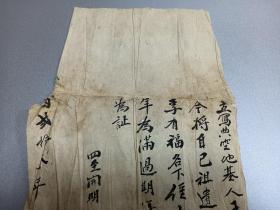 立寫典空地基人王
今將自己祖遺
李有福名下住
年為滿過期
為証
四至開明
年